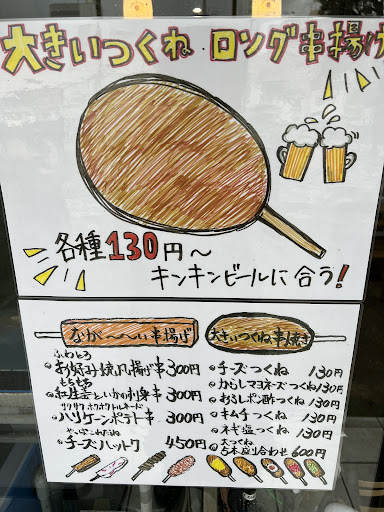 大きいつくね ロング串揚げ
各種130円〜
キンキンビールに合う!
なが〜〜い串揚げ
ふわとろ
お好み焼風揚げ串 300円
もちもち
紅生姜といかの刺身串 300円
ハリケーンポテト串 300円
やっぱこれだね
チーズハットク 450円
大きいつくね串焼き
チーズつくね 130円
からしマヨネーズつくね 130円
おろしポン酢つくね 130円
キムチつくね 130円
ネギ塩つくね 130円
大つくね
5本盛り合わせ 600円